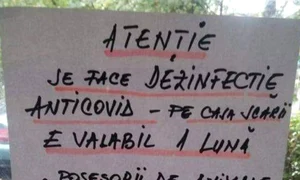 ATENȚIE
SE FACE DEZINFECTIE
ANTICOVID - PE CASA SCARII
E VALABIL 1 LUNĂ
- POSESORII DE ANIMALE